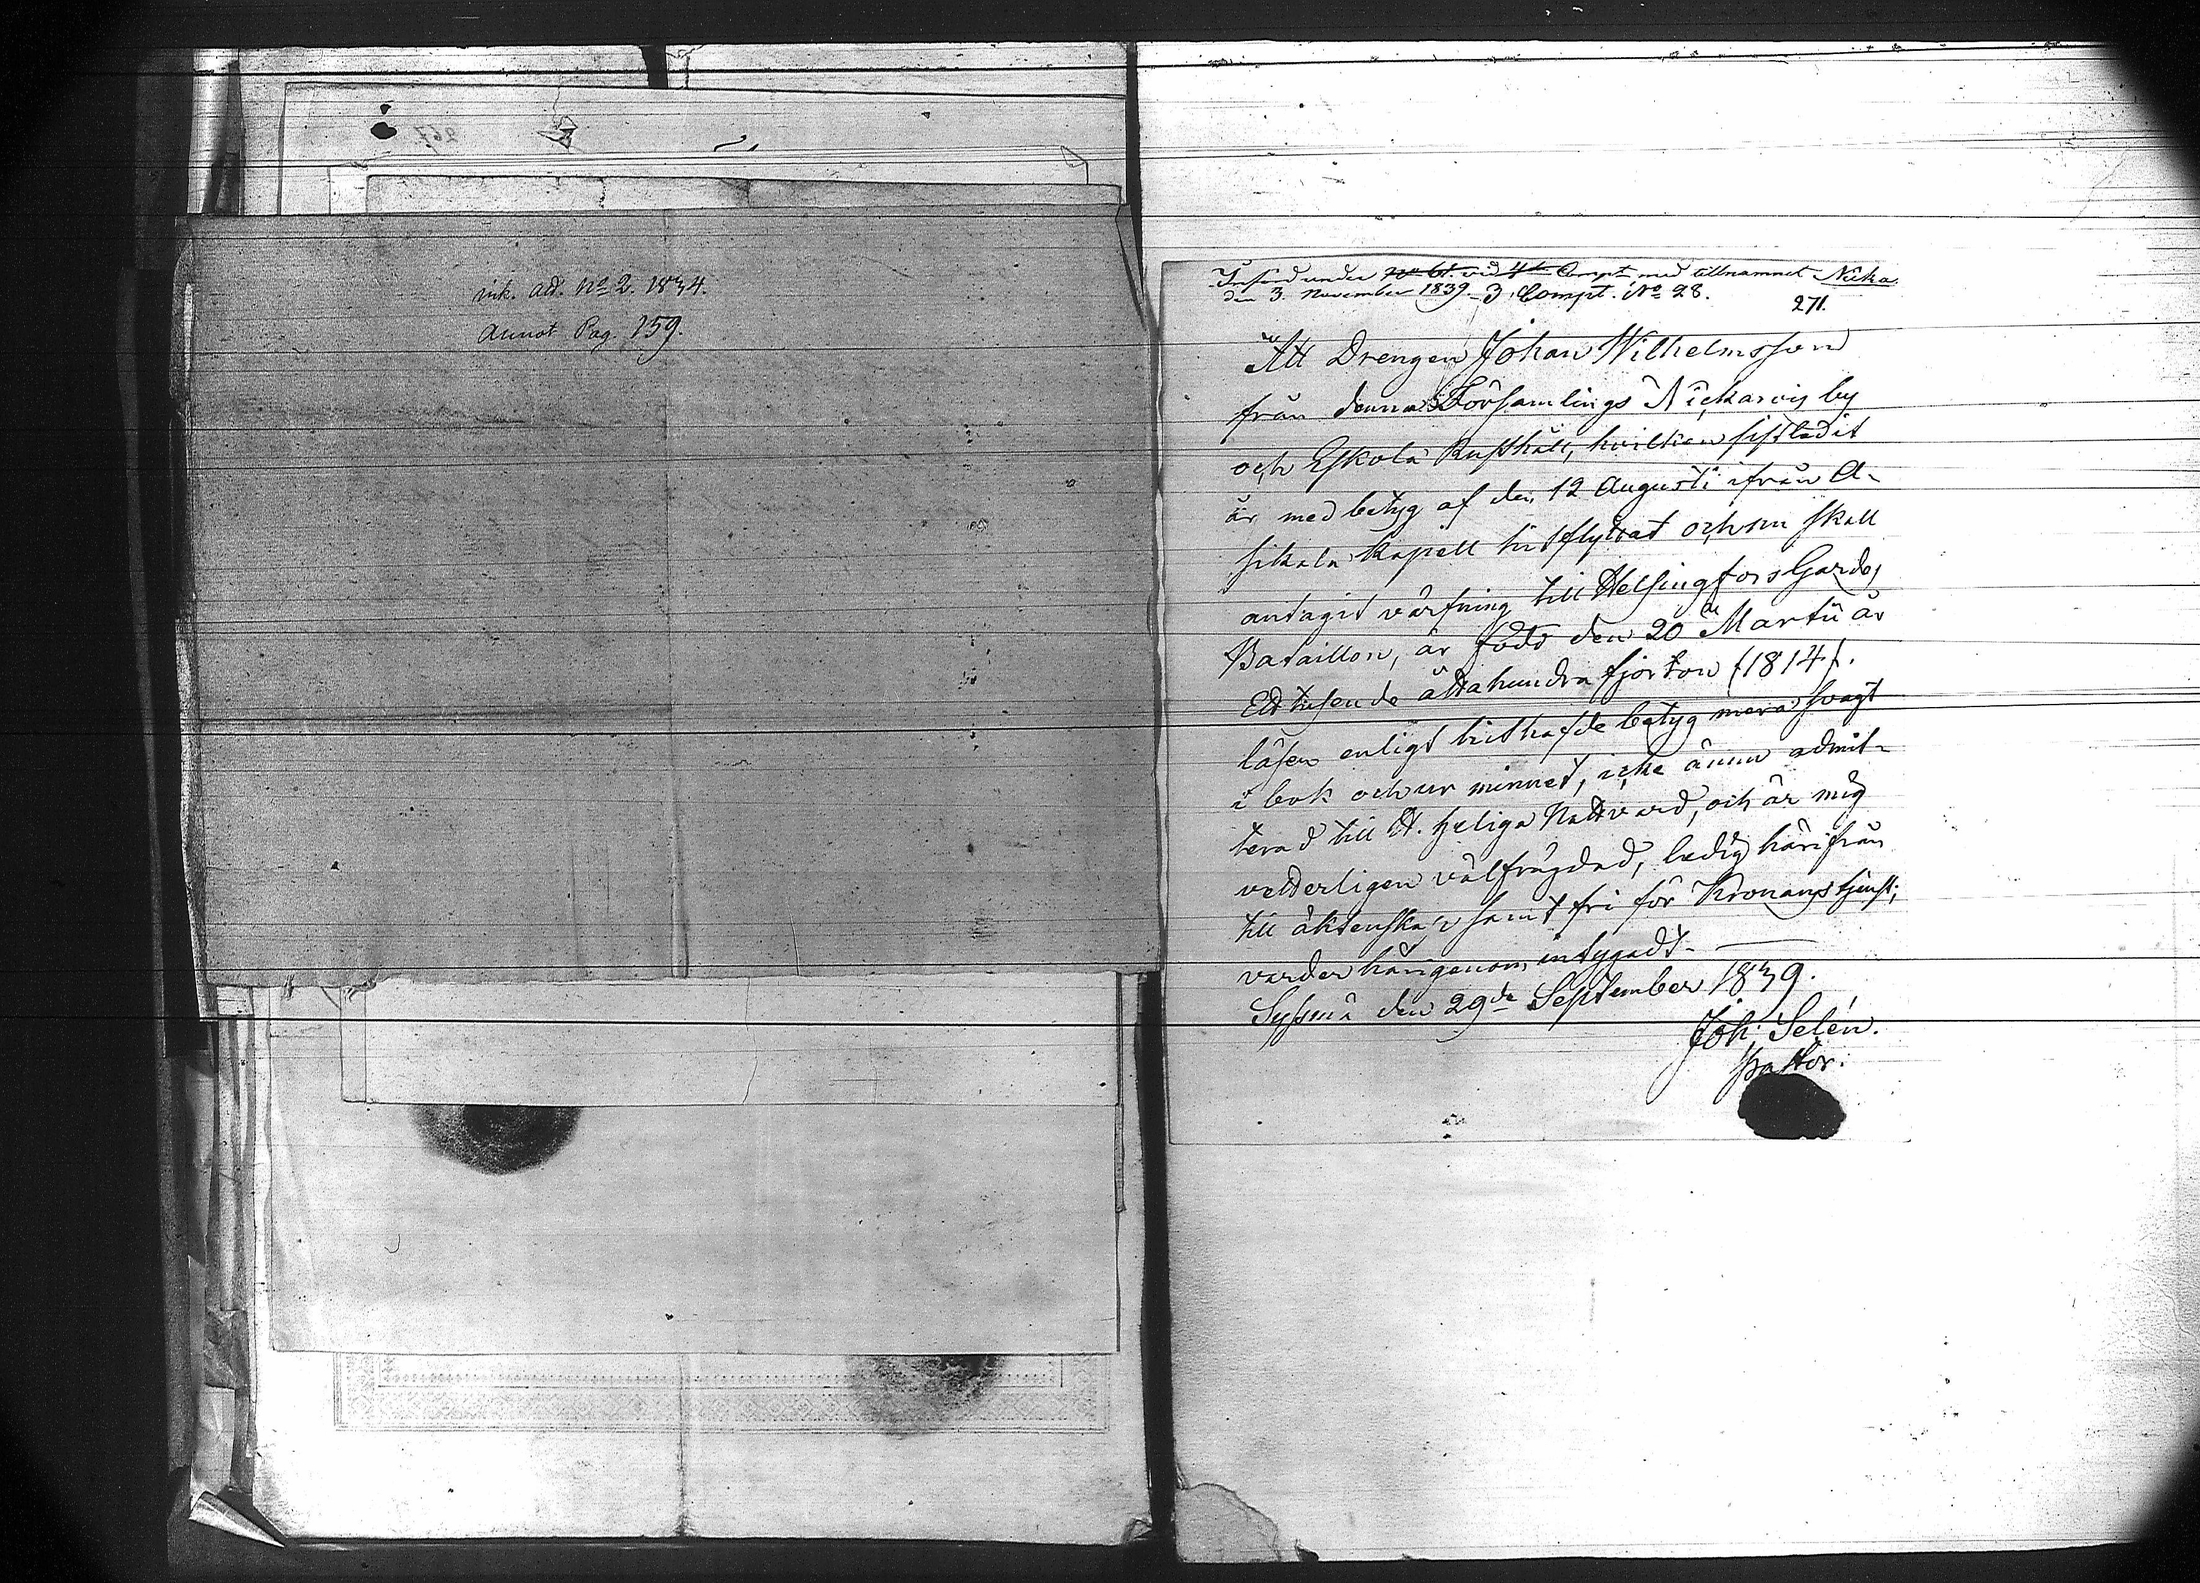 ink. att. No 2. 1834.
Annot Pag. 159.
Införd under No 61 vid 4de Compt med tillnamnet Nicka.
den 3. November 1839. 3. Compt. No 28.
271.
Att Drengen Johan Wilhelmsson
från denna Församlings Nickarois by
och Eskola Rusthåll, hvilken sistledit
år med betyg af den 12 Augusti ifrån A-
sikala Kapell hitflyttat och nu skall
antagit värfning till Helsingfors Gardes
Bataillon, är född den 20de Martii år
Ett tusende åttahundra fjorton (1814).
läser enligt hithafde betyg mera svagt
i bok och ur minnet, icke ännu admit-
terad till H. Heliga Nattvard, och är mig
vetterligen välfrägdad, ledig härifrån
till äktenskap samt fri för Kronans tjenst;
varder härigenom intygadt.
Sysmä den 29de September 1839.
Joh. Selén.
Pastor.